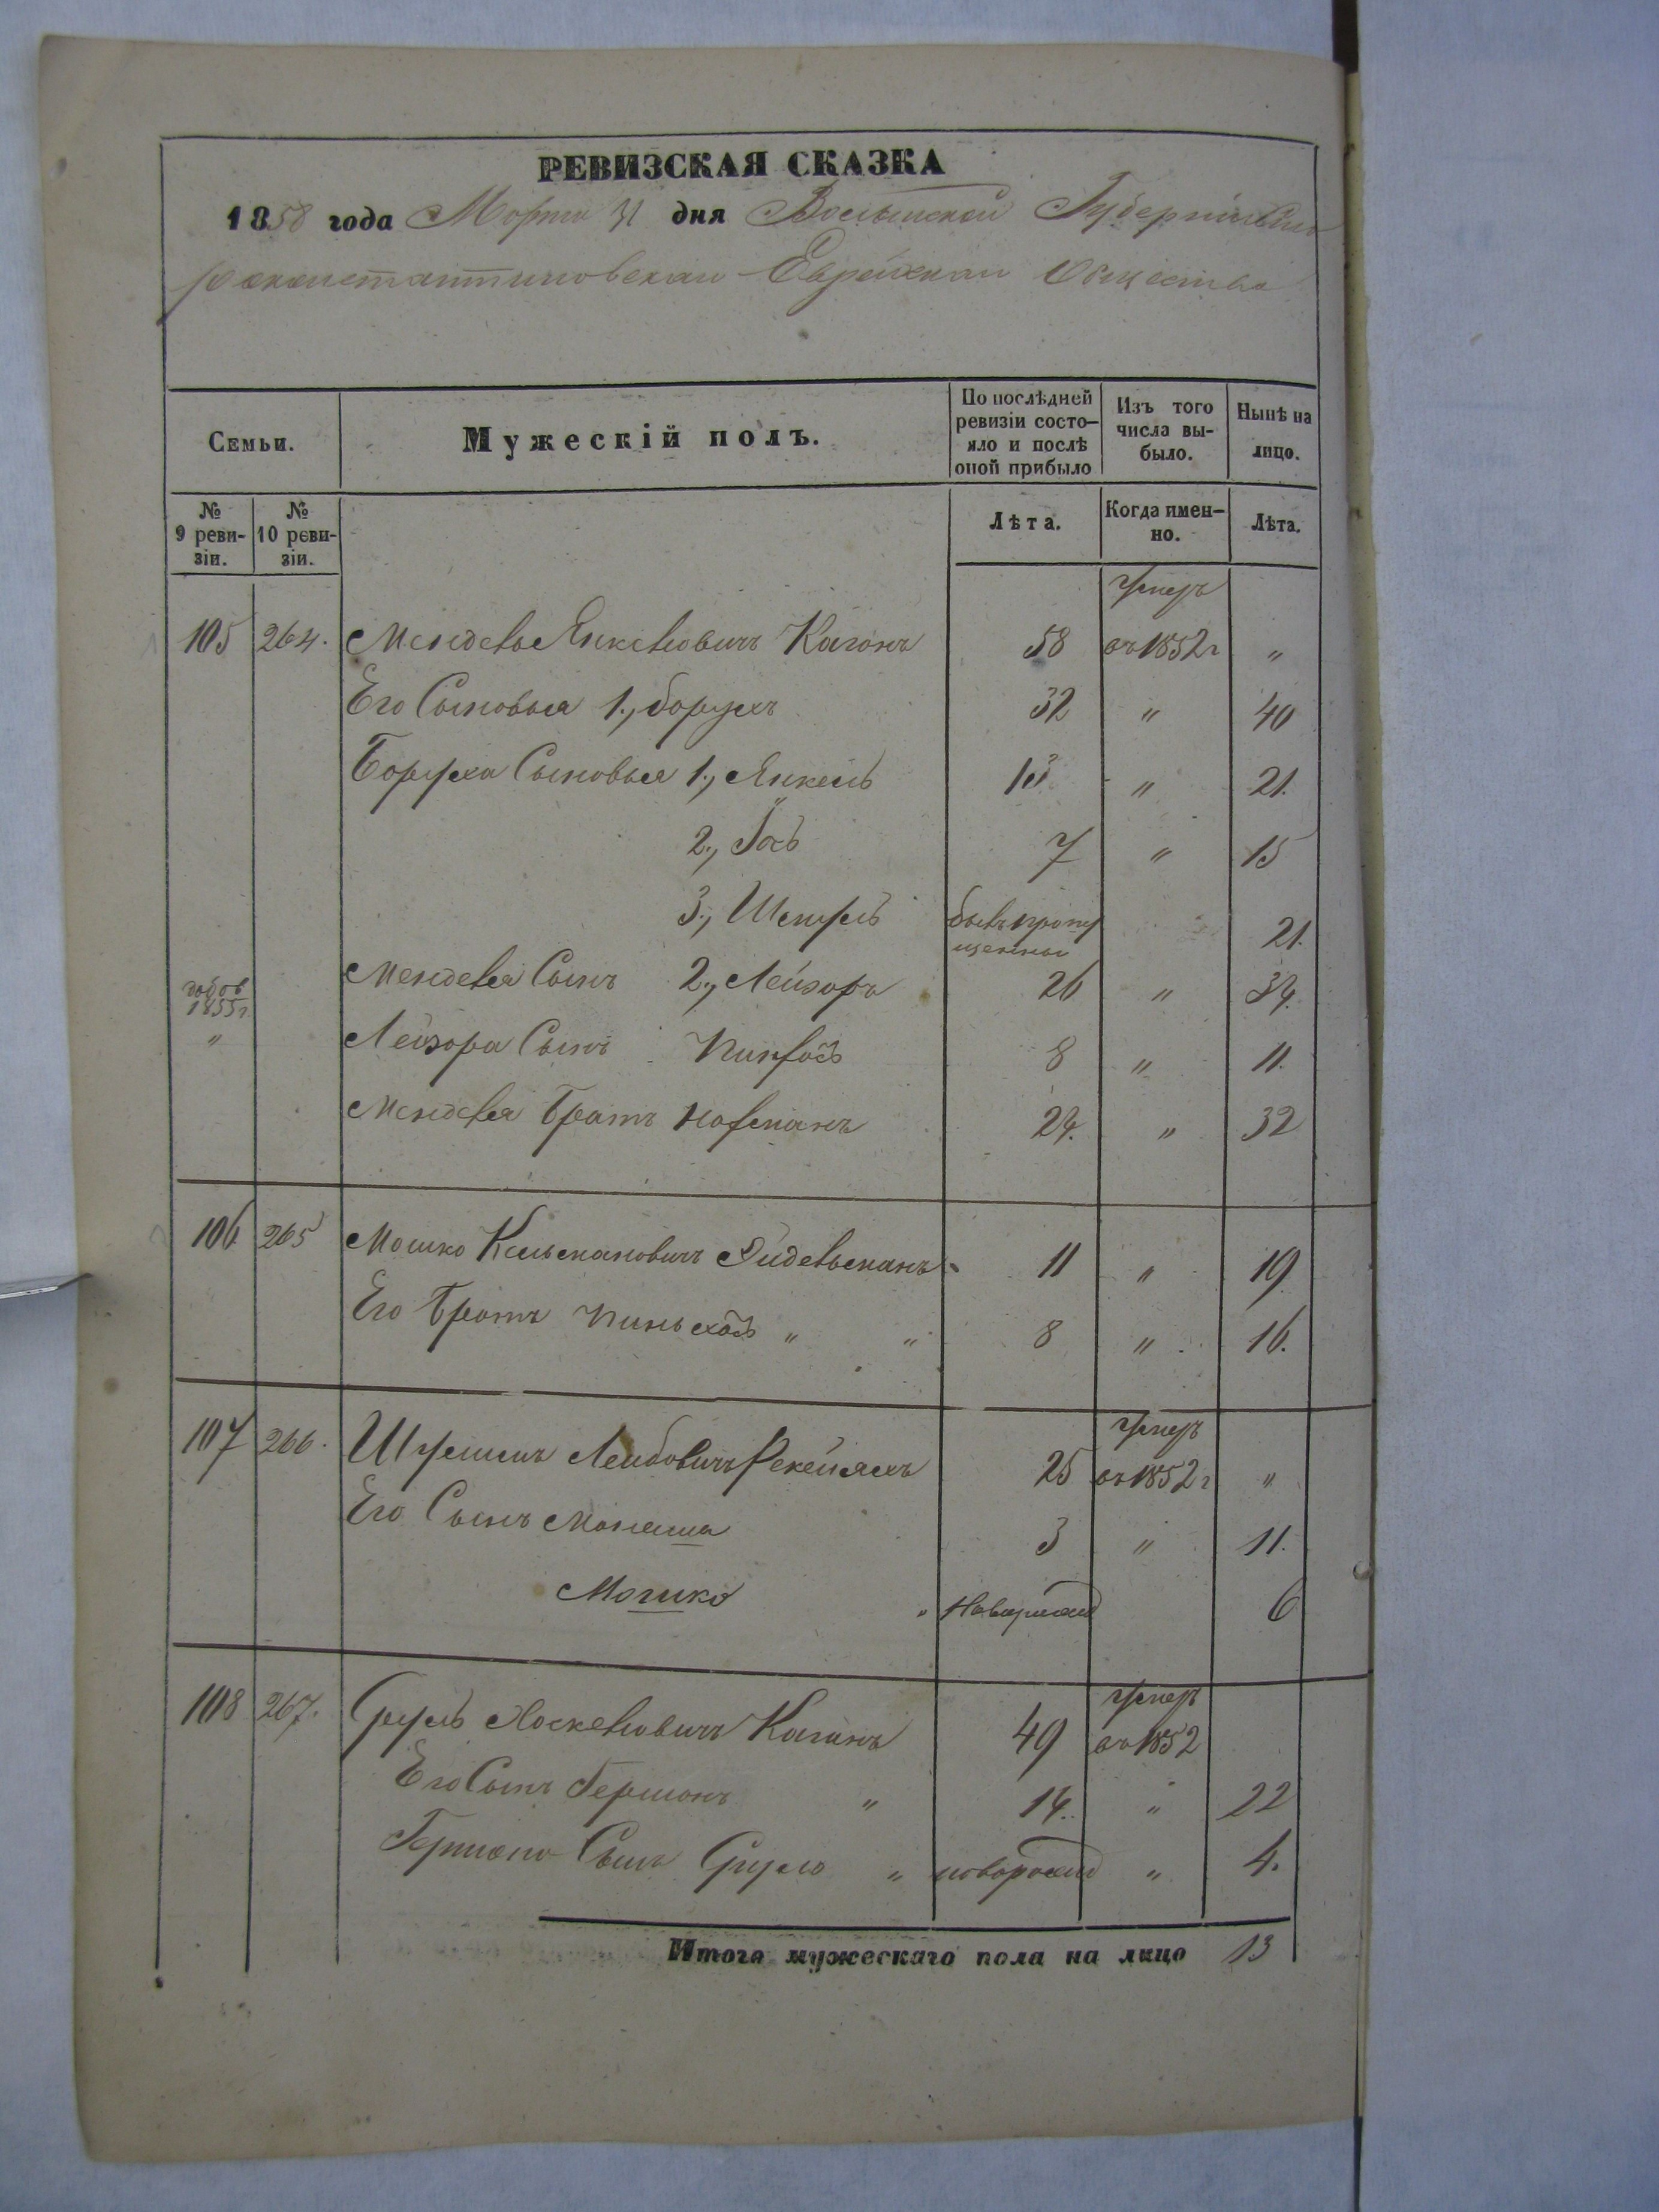 РЕВИЗСКАЯ СКАЗКА
1858 года Марта 31 дня Волынской Губерніи Ста
роконстантиновскаи Еврейскаи Общества
Семьи.
Мужескій полъ.
По послѣдней ревизіи состо-яло и послѣ оной прибыло
Изъ того числа вы-было.
Нынѣ на лицо.
№ 9 реви-зіи.
№ 10 реви-зіи.
Лѣта.
Когда имен-но.
Лѣта.
105 264. Мендель Янкелiовичъ Каганъ 58 умеръ въ 1852 г "
Его Сыновья 1., Борухъ 32 " 40
Боруха Сыновья 1., Янкель 13 " 21.
2., Іось 7 " 15
3., Шмуль бывъ пропущенны 21.
добов 1855 г Менделя Сынъ 2., Лейзоръ 26 " 34.
" Лейзора Сынъ Пинхасъ 8 " 11.
Менделя Братъ Нахманъ 24. " 32
106 265 Мошко Кельмановичъ Эйдельманъ 11 " 19
Его Братъ Пиньхасъ " " 8 " 16.
107 266. Лейбовичъ 25 умеръ въ 1852 г "
Его Сынъ Манаша 3 " 11.
Мошко " Новорожд 6
108 267. Сруль Каганъ 49 умеръ въ 1852
Его Сынъ Гершонъ " 14. " 22
Гершона Сынъ Сруль " новорожд " 4.
Итого мужескаго пола на лицо 13